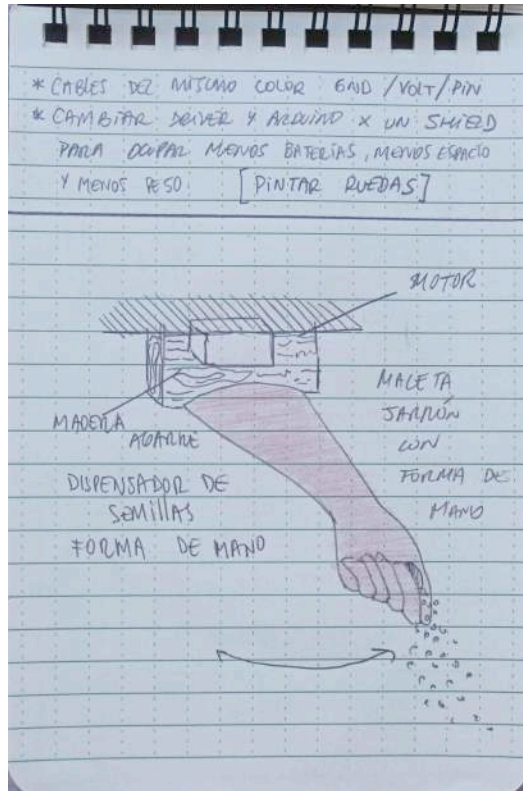 * CABLES DEL MISMO COLOR GND / VOLT / PIN
* CAMBIAR DRIVER Y ARDUINO X UN SHIELD
PARA OCUPAR MENOS BATERÍAS, MENOS ESPACIO
Y MENOS PESO [PINTAR RUEDAS]
MOTOR
MADERA
AGARRE
MACETA
JARRÓN
CON
FORMA DE
MANO
DISPENSADOR DE
SEMILLAS
FORMA DE MANO